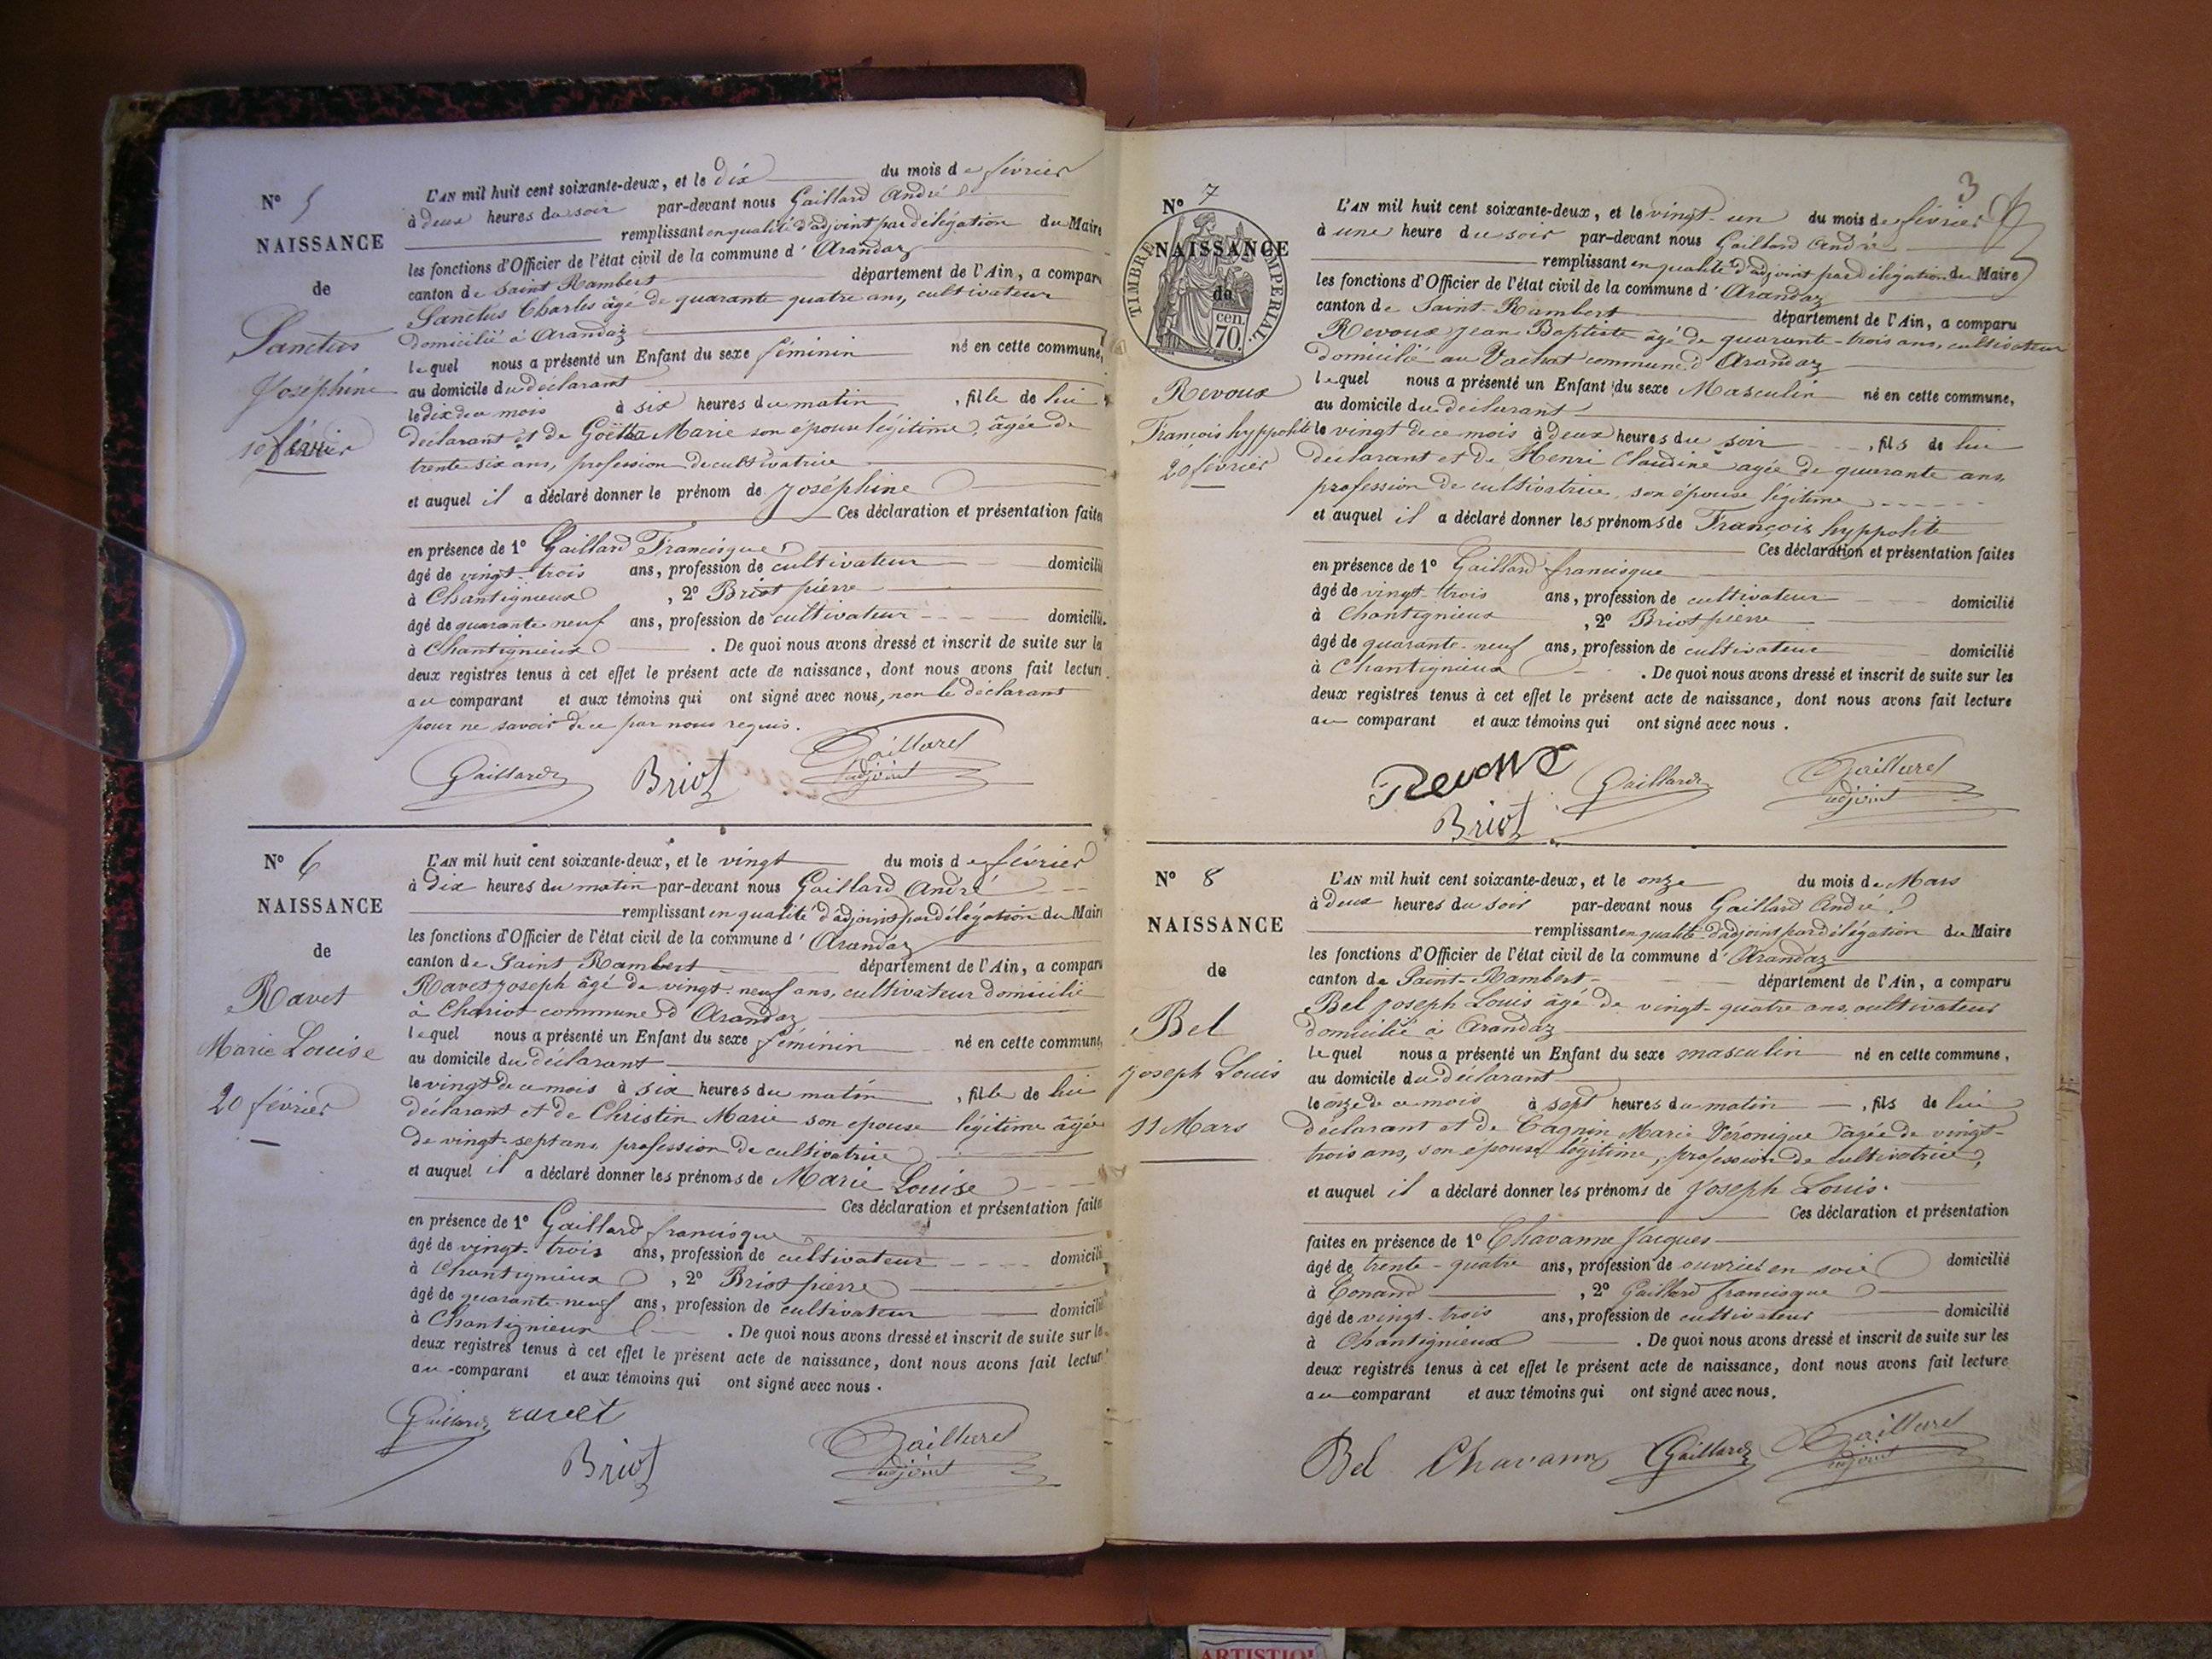 N° 5
NAISSANCE
de
Sanctus
Joséphine
10 février
L'AN mil huit cent soixante-deux, et le dix du mois de février
à deux heures du soir par-devant nous Gaillard André
remplissant en qualité d'adjoint par délégation du Maire
les fonctions d'Officier de l'état civil de la commune d' Arandaz
canton de Saint Rambert département de l'Ain, a comparu
Sanctus Charles âgé de quarante quatre ans, cultivateur
domicilié à Arandaz
lequel nous a présenté un Enfant du sexe féminin né en cette commune,
au domicile du déclarant
le dix de ce mois à six heures du matin, fille de lui
déclarant et de Marie son épouse légitime, âgée de
trente six ans, profession de cultivatrice
et auquel il a déclaré donner le prénom de Joséphine
Ces déclaration et présentation faites
en présence de 1° Gaillard Francisque
âgé de vingt-trois ans, profession de cultivateur domicilié
à Chantignieux, 2° Briot pierre
âgé de quarante neuf ans, profession de cultivateur domicilié
à Chantignieux. De quoi nous avons dressé et inscrit de suite sur les
deux registres tenus à cet effet le présent acte de naissance, dont nous avons fait lecture
au comparant et aux témoins qui ont signé avec nous, non le déclarant
pour ne savoir de ce par nous requis.
Gaillard Briot Gaillard
adjoint
N° 6
NAISSANCE
de
Ravet
Marie Louise
20 février
L'AN mil huit cent soixante-deux, et le vingt du mois de février
à dix heures du matin par-devant nous Gaillard André
remplissant en qualité d'adjoint par délégation du Maire
les fonctions d'Officier de l'état civil de la commune d' Arandaz
canton de Saint Rambert département de l'Ain, a comparu
Ravet joseph âgé de vingt-neuf ans, cultivateur domicilié
à Chariot commune d'Arandaz
lequel nous a présenté un Enfant du sexe féminin né en cette commune,
au domicile du déclarant
le vingt de ce mois à six heures du matin, fille de lui
déclarant et de Christin Marie son epouse légitime âgée
de vingt-sept ans, profession de cultivatrice
et auquel il a déclaré donner les prénoms de Marie Louise
Ces déclaration et présentation faites
en présence de 1° Gaillard francisque
âgé de vingt-trois ans, profession de cultivateur domicilié
à Chantignieux, 2° Briot pierre
âgé de quarante-neuf ans, profession de cultivateur domicilié
à Chantignieux. De quoi nous avons dressé et inscrit de suite sur les
deux registres tenus à cet effet le présent acte de naissance, dont nous avons fait lecture
au comparant et aux témoins qui ont signé avec nous.
Gaillard ravet
Briot Gaillard
adjoint
3
N° 7
NAISSANCE
de
TIMBRE IMPERIAL
70 cen.
Revoux
Francois hyppolite
20 février
L'AN mil huit cent soixante-deux, et le vingt-un du mois de février
à une heure du soir par-devant nous Gaillard André
remplissant en qualité d'adjoint par délégation du Maire
les fonctions d'Officier de l'état civil de la commune d' Arandaz
canton de Saint-Rambert département de l'Ain, a comparu
Revoux Jean Baptiste âgé de quarante-trois ans, cultivateur
domicilié au Vachat commune d'Arandaz
lequel nous a présenté un Enfant du sexe Masculin né en cette commune,
au domicile du déclarant
le vingt de ce mois à deux heures du soir, fils de lui
déclarant et de Henri Claudine agée de quarante ans,
profession de cultivatrice, son épouse légitime
et auquel il a déclaré donner les prénoms de François hyppolite
Ces déclaration et présentation faites
en présence de 1° Gaillard francisque
âgé de vingt-trois ans, profession de cultivateur domicilié
à Chantignieux, 2° Briot pierre
âgé de quarante-neuf ans, profession de cultivateur domicilié
à Chantignieux. De quoi nous avons dressé et inscrit de suite sur les
deux registres tenus à cet effet le présent acte de naissance, dont nous avons fait lecture
au comparant et aux témoins qui ont signé avec nous.
Revoux Gaillard Gaillard
Briot adjoint
N° 8
NAISSANCE
de
Bel
Joseph Louis
11 Mars
L'AN mil huit cent soixante-deux, et le onze du mois de Mars
à deux heures du soir par-devant nous Gaillard André
remplissant en qualité d'adjoint par délégation du Maire
les fonctions d'Officier de l'état civil de la commune d' Arandaz
canton de Saint-Rambert département de l'Ain, a comparu
Bel Joseph Louis âgé de vingt-quatre ans, cultivateur
domicilié à Arandaz
lequel nous a présenté un Enfant du sexe masculin né en cette commune,
au domicile du déclarant
le onze de ce mois à sept heures du matin, fils de lui
déclarant et de Cagnin Marie Véronique agée de vingt-
trois ans, son épouse légitime, profession de cultivatrice,
et auquel il a déclaré donner les prénoms de Joseph Louis.
Ces déclaration et présentation
faites en présence de 1° Chavanne Jacques
âgé de trente-quatre ans, profession de ouvrier en soie domicilié
à Conand, 2° Gaillard francisque
âgé de vingt-trois ans, profession de cultivateur domicilié
à Chantignieux. De quoi nous avons dressé et inscrit de suite sur les
deux registres tenus à cet effet le présent acte de naissance, dont nous avons fait lecture
au comparant et aux témoins qui ont signé avec nous.
Bel Chavanne Gaillard Gaillard
adjoint